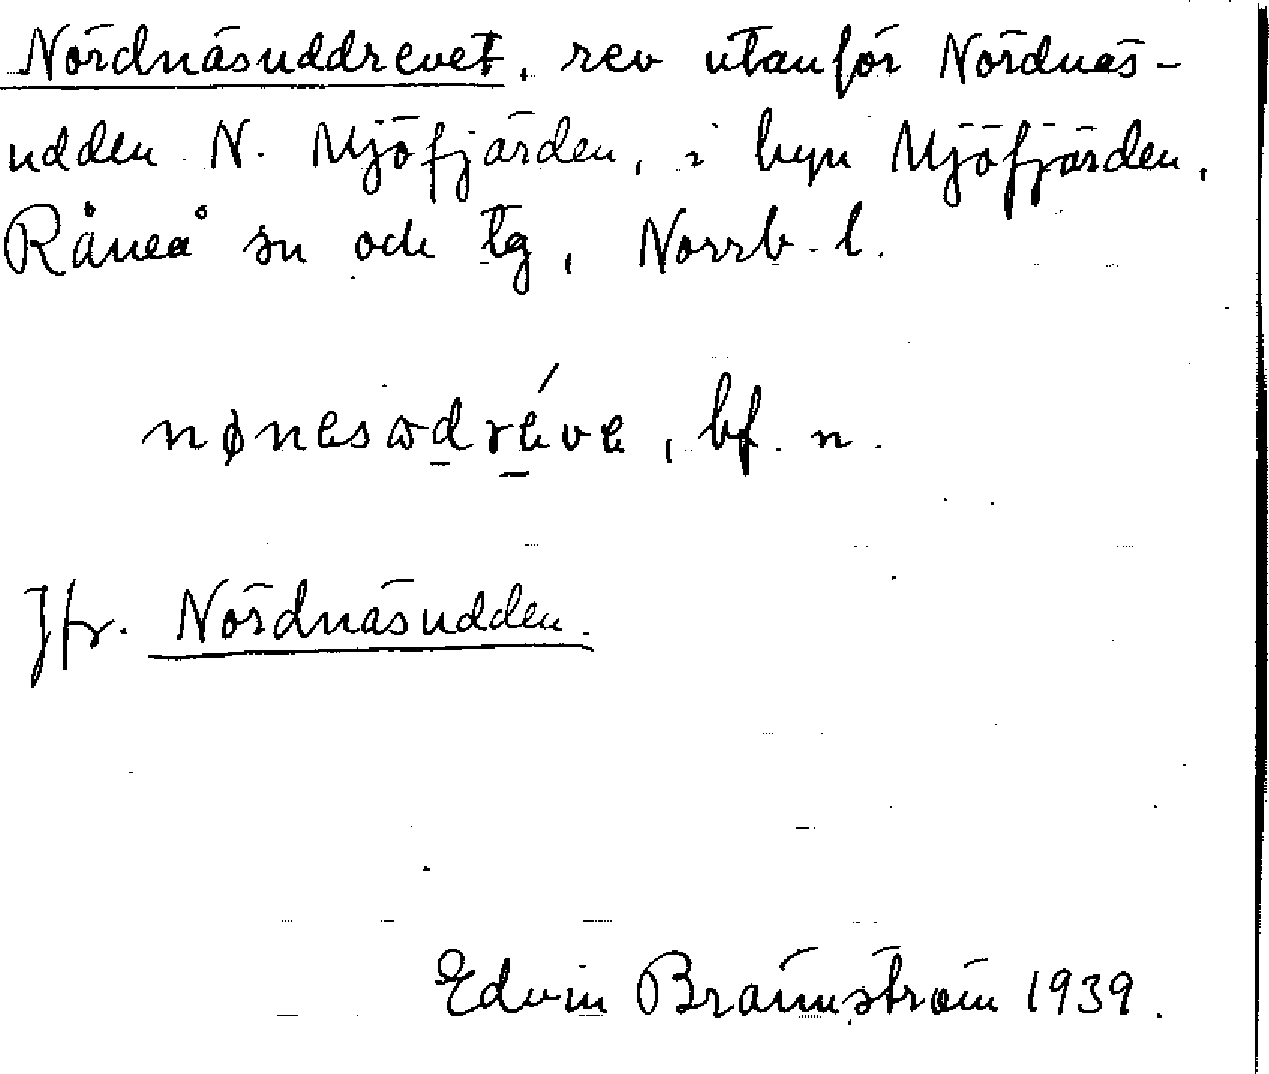 Nördnäsuddrevet, rev utanför Nördnäs-
udden N. Mjöfjärden, i byn Mjöfjärden,
Råneå sn och tg, Norrb. l.
, bf. n.
Jfr. Nördnäsudden.
Edvin Brännström 1939.